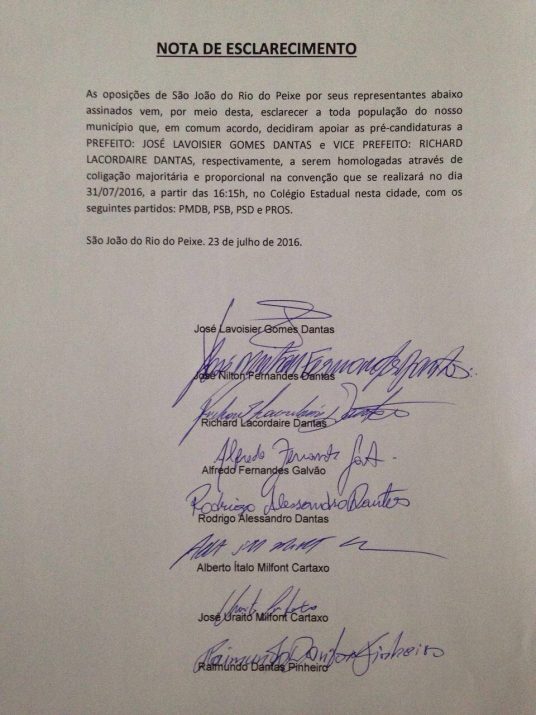 NOTA DE ESCLARECIMENTO
As oposições de São João do Rio do Peixe por seus representantes abaixo
assinados vem, por meio desta, esclarecer a toda população do nosso
município que, em comum acordo, decidiram apoiar as pré-candidaturas a
PREFEITO: JOSÉ LAVOISIER GOMES DANTAS e VICE PREFEITO: RICHARD
LACORDAIRE DANTAS, respectivamente, a serem homologadas através de
coligação majoritária e proporcional na convenção que se realizará no dia
31/07/2016, a partir das 16:15h, no Colégio Estadual nesta cidade, com os
seguintes partidos: PMDB, PSB, PSD e PROS.
São João do Rio do Peixe. 23 de julho de 2016.
José Lavoisier Gomes Dantas
José Nilton Fernandes Dantas
José Nilton Fernandes Dantas
Richard Lacordaire Dantas
Richard Lacordaire Dantas
Alfredo Fernandes
Alfredo Fernandes Galvão
Rodrigo Alessandro Dantas
Rodrigo Alessandro Dantas
Alberto Ítalo Milfont Cartaxo
José Uraito Milfont Cartaxo
Raimundo Dantas Pinheiro
Raimundo Dantas Pinheiro